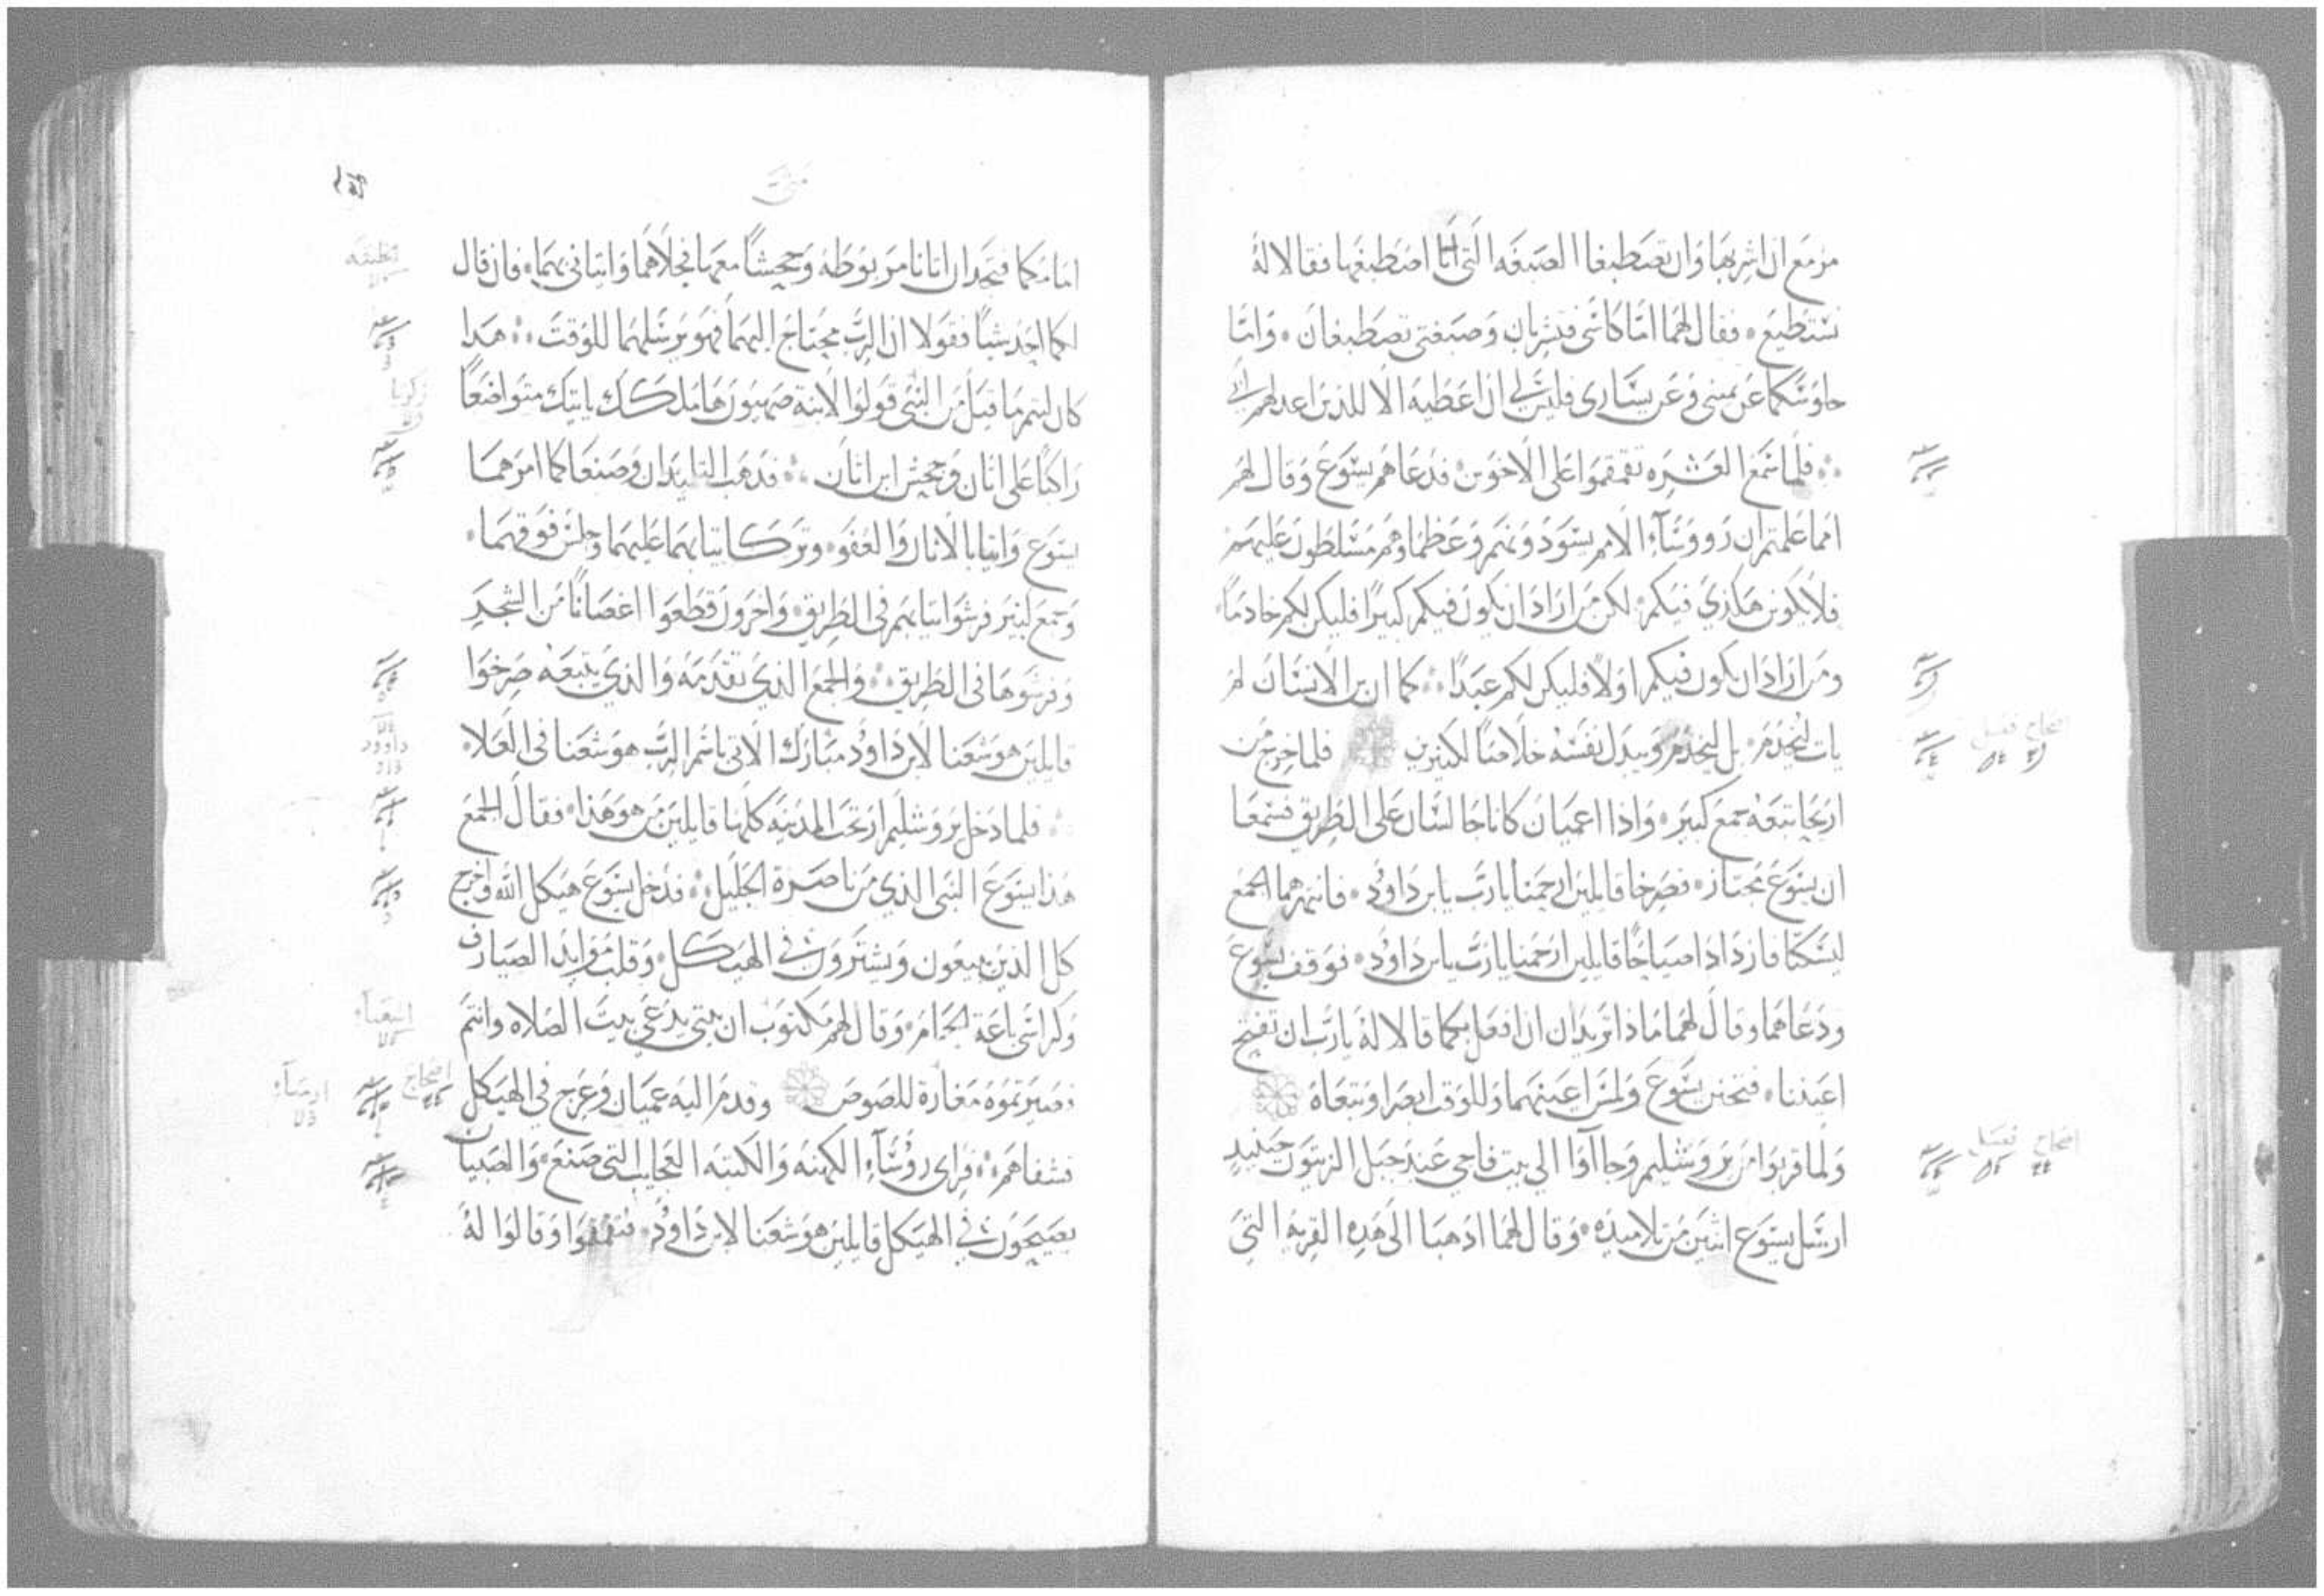 مزمع ان اشربها وان تصطبغا الصبغه التي انا اصطبغها فقالا له
نستطيع • فقال لهما اما كاسي فتشربان وصبغتي تصطبغان • واما
جلوسكما عن يميني وعن يساري فليس لي ان اعطيه الا للذين اعد لهم
فلما سمع العشره تقمقموا على الاخوين فدعاهم يسوع وقال لهم
اما علمتم ان رووساء الامم يسودونهم وعظماوهم مسلطون عليهم
فلا يكونن هكذي فيكم لكن من اراد ان يكون فيكم كبيرا فليكن لكم خادما
ومن اراد ان يكون فيكم اولا فليكن لكم عبدا كما ان بن الانسان لم
يات ليخدم بل ليخدم ويبدل نفسه خلاصا لكثيرين فلما خرج من
اريحا تبعه جمع كبير • واذا اعميان كانا جالسان على الطريق فسمعا
ان يسوع مجتاز • فصرخا قايلين ارحمنا يا رب يا بن داوود • فانتهرهما الجمع
ليسكتا فازدادا صياحا قايلين ارحمنا يا رب يا بن داوود • فوقف يسوع
ودعاهما وقال لهما ماذا تريدان ان افعل بكما قالا له يا رب ان تفتح
اعيننا • فتحنن يسوع ولمس اعينهما وللوقت ابصرا وتبعاه
اصحاح فصل
ولما قربوا من يروشليم وجااوا الي بيت فاجي عند جبل الزيتون حينيد
ارسل يسوع اثنين من تلاميده • وقال لهما ادهبا الى هده القريه التي
متى
امامكما فتجدان اتانا مربوطه وجحشا معها فحلاهما واتياني بهما • فان قال
لكما احد شيا فقولا ان الرب محتاج اليهما فهو يرسلهما للوقت هدا
كان ليتم ما قيل من النبي قولوا لابنة صهيون ها ملكك ياتيك متواضعا
زكريا
راكبا على اتان وجحش ابن اتان فدهب التلميدان وصنعا كما امرهما
يسوع واتيا بالاتان والعفو • وتركا ثيابهما عليهما وجلس فوقهما •
وجمع كثير فرشوا ثيابهم في الطريق • واخرون قطعوا اغصانا من الشجر
وفرشوها في الطريق والجمع الذي تقدمه والذي يتبعه صرخوا
قايلين هوشعنا لابن داوود مبارك الاتي باسم الرب هوشعنا في العلا •
داوود
فلما دخل يروشليم ارتجت المدينه كلها قايلين من هو هذا • فقال الجمع
هذا يسوع النبي الذي من ناصرة الجليل فدخل يسوع هيكل الله واخرج
كل الذين يبيعون ويشترون في الهيكل • وقلب موايد الصيارف
وكراسي باعة الحمام • وقال لهم مكتوب ان بيتي يدعي بيت الصلاه وانتم
اشعيآء
فصيرتموه مغارة للصوص وقدم اليه عميان وعرج في الهيكل
اصحاح ارميآء
فشفاهم فراى روساء الكهنه والكتبه العجايب التي صنع • والصبيان
يصيحون في الهيكل قايلين هوشعنا لابن داوود • فتقمقموا وقالوا له